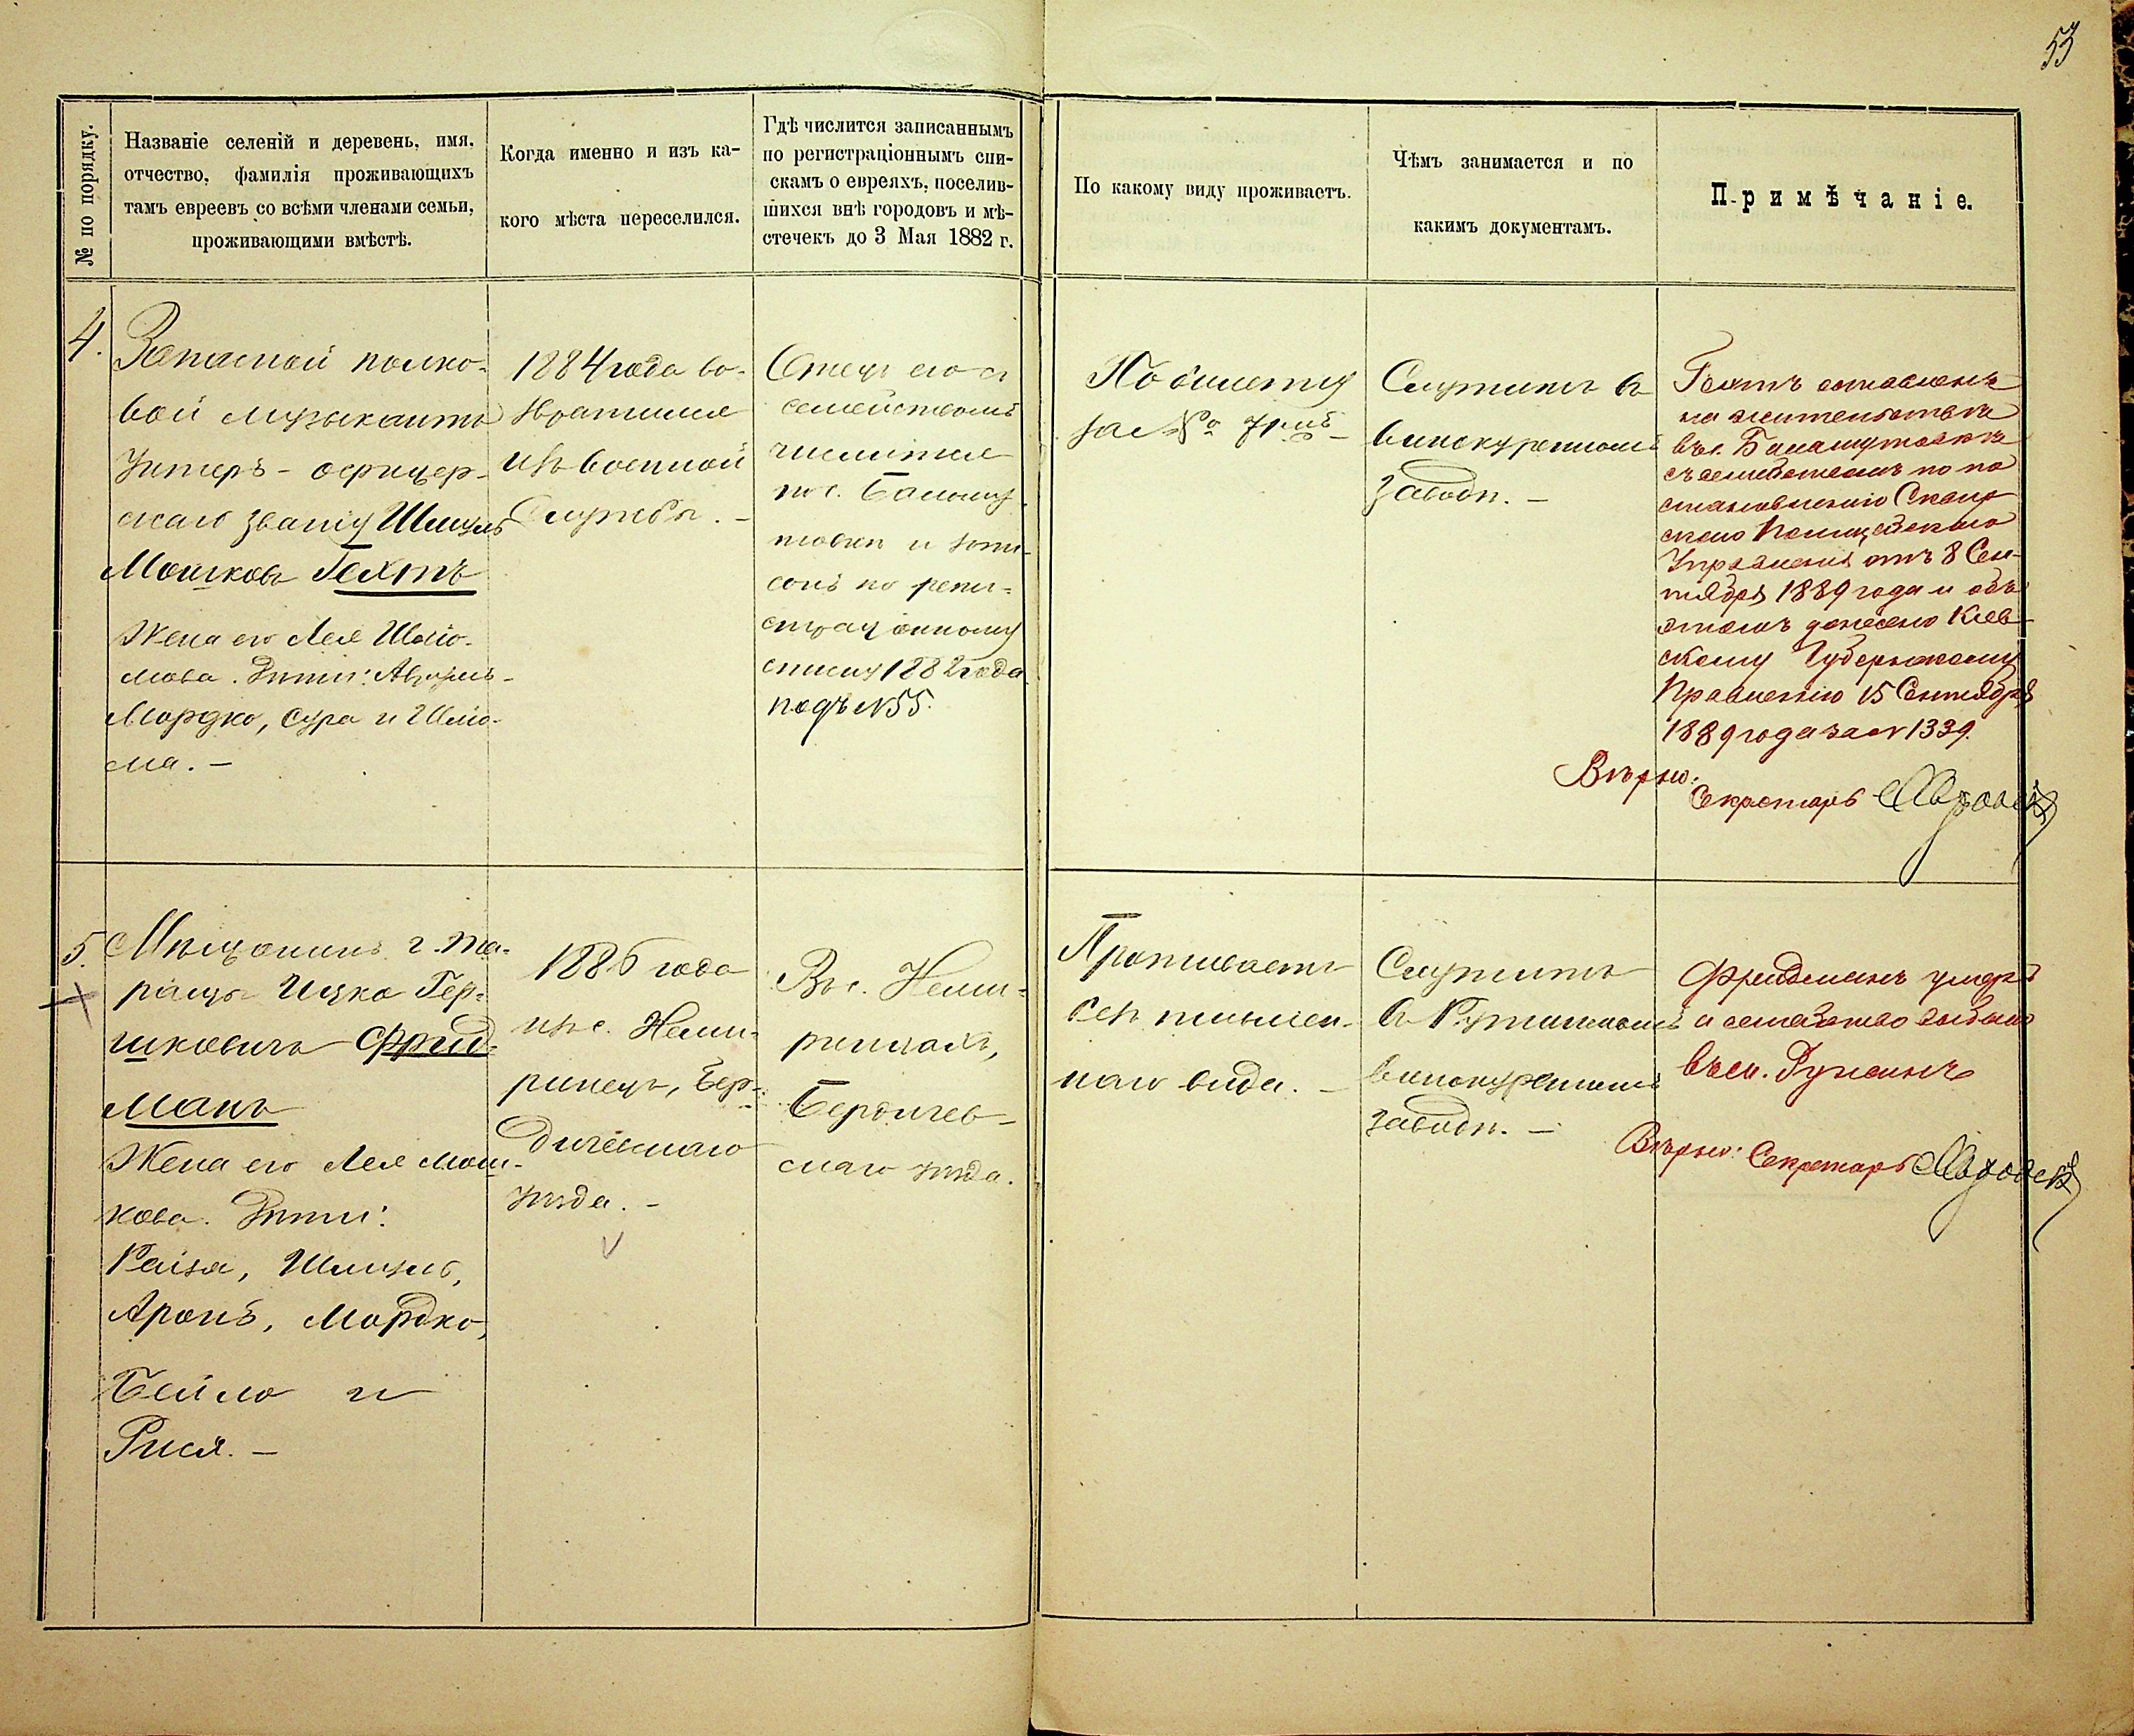 53
№ по порядку.
Названіе селеній и деревень, имя,
отчество, фамилія проживающихъ
тамъ евреевъ со всѣми членами семьи,
проживающими вмѣстѣ.
Когда именно и изъ ка-
кого мѣста переселился.
Гдѣ числится записаннымъ
по регистраціоннымъ спи-
скамъ о евреяхъ, поселив-
шихся внѣ городовъ и мѣ-
стечекъ до 3 Мая 1882 г.
По какому виду проживаетъ.
Чѣмъ занимается и по
какимъ документамъ.
Примѣчаніе.
4.
Запасной полко-
вой музыкантъ
Унтеръ-офицер-
скаго званія Шмуль
Мошковъ Гехтъ
Жена его Лея Шліо-
мова. Дѣти: Аврумъ-
Мордко, Сура и Шлио-
ма. —
1884 года во-
звратился
изъ военной
службы. —
Отецъ его съ
семействомъ
числится
по с.
и запи-
санъ по реги-
страціонному
списку 1882 года
подъ N 55.
По билету
за №
Служитъ въ
винокуренномъ
заводѣ. —
Гехтъ оставленъ
на жительствѣ
въ с.
съ семействомъ по по
становленію Сквир
скаго Полицейскаго
Управленія отъ 8 Сен-
тября 1889 года и объ
этомъ донесено Кіев-
скому Губернскому
Правленію 15 Сентября
1889 года за N 1339.
Вѣрно:
Секретарь
5.
Мѣщанинъ г. Та-
ращи Ицко Гер-
шковичъ Фрид-
манъ
Жена его Лея Мош-
кова. Дѣти:
Рейзя, Шмуль,
Аронъ, Мордко,
Бейла и
Рися. —
1886 года
изъ с. Неми-
ринецъ, Бер-
дичевскаго
уѣзда. —
Въ с. Неми-
ринцахъ,
Бердичев-
скаго уѣзда.
Проживаетъ
безъ письмен-
наго вида. —
Служитъ
въ Ружинскомъ
винокуренномъ
заводѣ. —
Фридманъ умеръ
и семейство выбыло
въ м. Ружинъ
Вѣрно: Секретарь